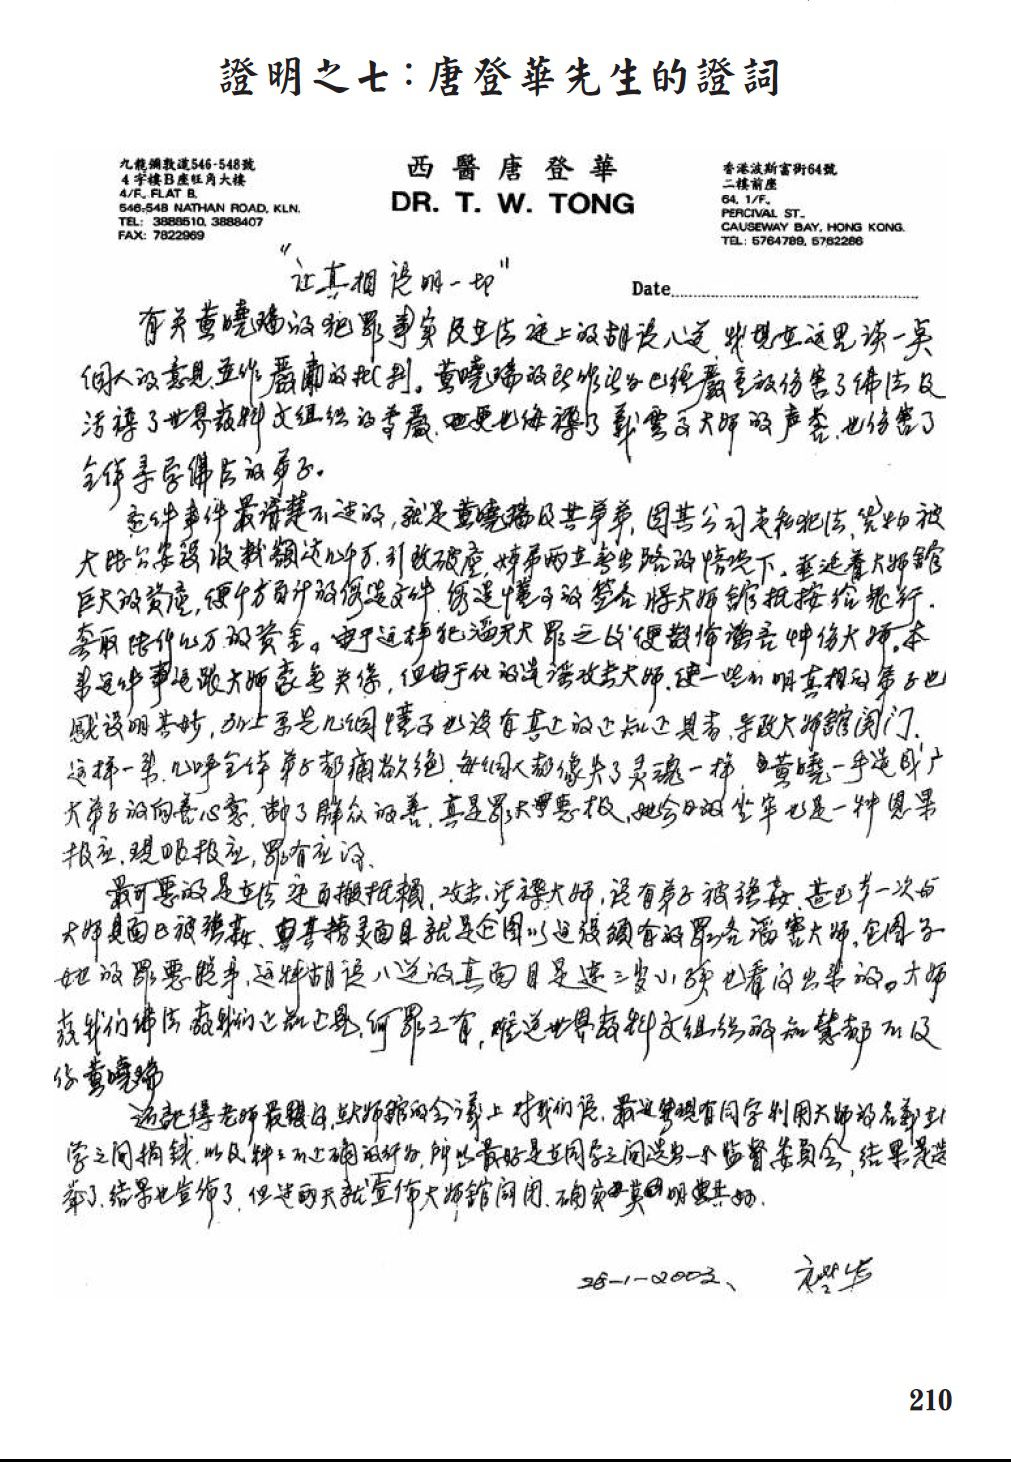 證明之七：唐登華先生的證詞
九龍彌敦道546-548號
4字樓B座旺角大樓
4/F., FLAT B,
546-548 NATHAN ROAD, KLN.
TEL: 3888510, 3888407
FAX: 7822969
西醫唐登華
DR. T. W. TONG
香港波斯富街64號
二樓前座
64, 1/F.,
PERCIVAL ST.,
CAUSEWAY BAY, HONG KONG.
TEL: 5764789, 5762286
"让真相说明一切"
Date
有关黄曉瑞的犯罪事实及在法庭上的胡说八道，我想在这里谈一点
個人的意見並作嚴肅的批判。黄曉瑞的所作所为已經嚴重的伤害了佛法及
污辱了世界教科文組织的尊嚴，更也侮辱了義雲高大师的声誉，也伤害了
全体寻学佛法的弟子。
这件事件最清楚不过的，就是黄曉瑞及其弟弟，因其公司走私犯法，货物被
大陆公安没收款額达九千万，引致破產，姊弟两在無出路的情况下，垂涎着大师舘
巨大的资產，便千方百计的偽造文件，偽造懂子的签名将大师舘抵按给銀行，
套取 万的资金。由于这样犯滔天大罪之後便散佈谣言中伤大师。本
来这件事情跟大师毫無关係，但由于她的造谣攻击大师，使一些不明真相的弟子也
感没明其妙，加上系先几個懂子也没有真正的正知正見者，导致大师舘関门，
这样一来，几呼全体弟子都痛欲绝，每個人都像失了灵魂一样，黄曉一手造成广
大弟子的向善心意，断了群众的善，真是罪大 惡极，她今日的坐牢也是一种恩果
报应，現眼报应，罪有应得。
最可惡的是在法庭百般抵賴，攻击，污辱大师，说有弟子被强姦，甚至第一次与
大师見面已被强姦， 其 面目就是企图以这 須有的罪名滔害大师，企图予
她的罪惡脱身，这种胡说八道的真面目是連三岁小孩也看得出来的。大师
教我们佛法教我们正知正見，何罪之有，难道世界教科文組织的知慧都不及
你黄曉瑞
还記得老师最後 在大师舘的会議上对我们说，最近發現有同学利用大师的名義在同
学之间捐钱，以及种种不正确的行为，所以最好是在同学之间选出一个監督委員会，结果是选
举了，结果也宣佈了，但过两天就宣佈大师舘関闭，确实莫明其妙。
28-1-2003、
唐登华
210